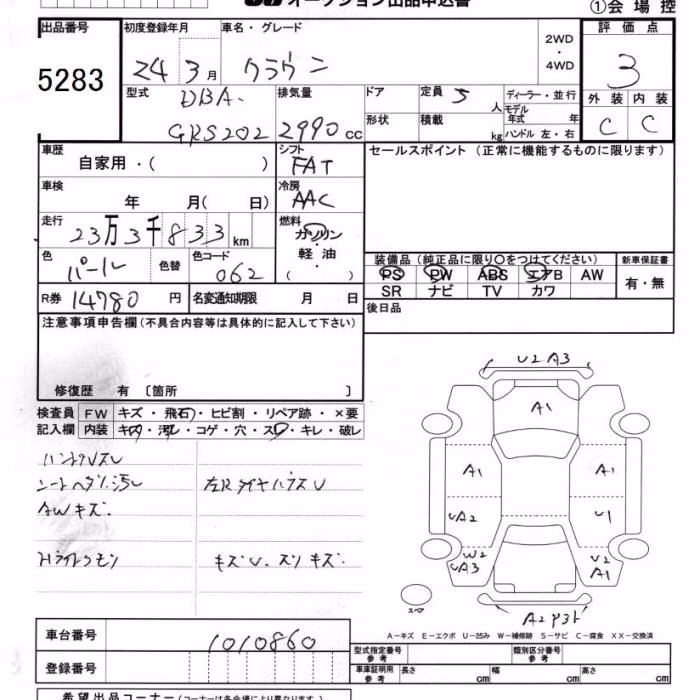 オークション出品申込書
①会場控
出品番号 5283
初度登録年月 24 3月
車名・グレード クラウン
2WD・4WD
評価点 3
外装 C 内装 C
型式 DBA- GRS202
排気量 2990 cc
ドア 形状
定員 5 人
積載 kg
ディーラー・並行
モデル年式 年
ハンドル 左・右
車歴 自家用・( )
シフト FAT
セールスポイント (正常に機能するものに限ります)
車検 年 月( 日)
冷房 AAC
走行 23万3千833 km
燃料 ガソリン・軽油・( )
色 パール 色替 色コード 062
装備品 (純正品に限り○をつけてください)
PS PW ABS エアB AW
SR ナビ TV カワ
新車保証書 有・無
R券 14780 円 名変通知期限 月 日
後日品
注意事項申告欄 (不具合内容等は具体的に記入して下さい)
修復歴 有 〔箇所 〕
検査員記入欄
FW キズ・飛石・ヒビ割・リペア跡・×要
内装 キズ・汚レ・コゲ・穴・スレ・キレ・破レ
ハンドルスレ
シートヘタリ、汚レ
AWキズ.
Hライト
U2 A3
A1
A1
A1
UA2
U1
W2
UA3
U2
A1
スペア
A2
A-キズ E-エクボ U-凹み W-補修跡 S-サビ C-腐食 XX-交換済
車台番号 1010860
登録番号
型式指定番号 参考
類別区分番号 参考
車庫証明用 参考 長さ cm 幅 cm 高さ cm
希望出品コーナー (コーナーは各会場により異なります)